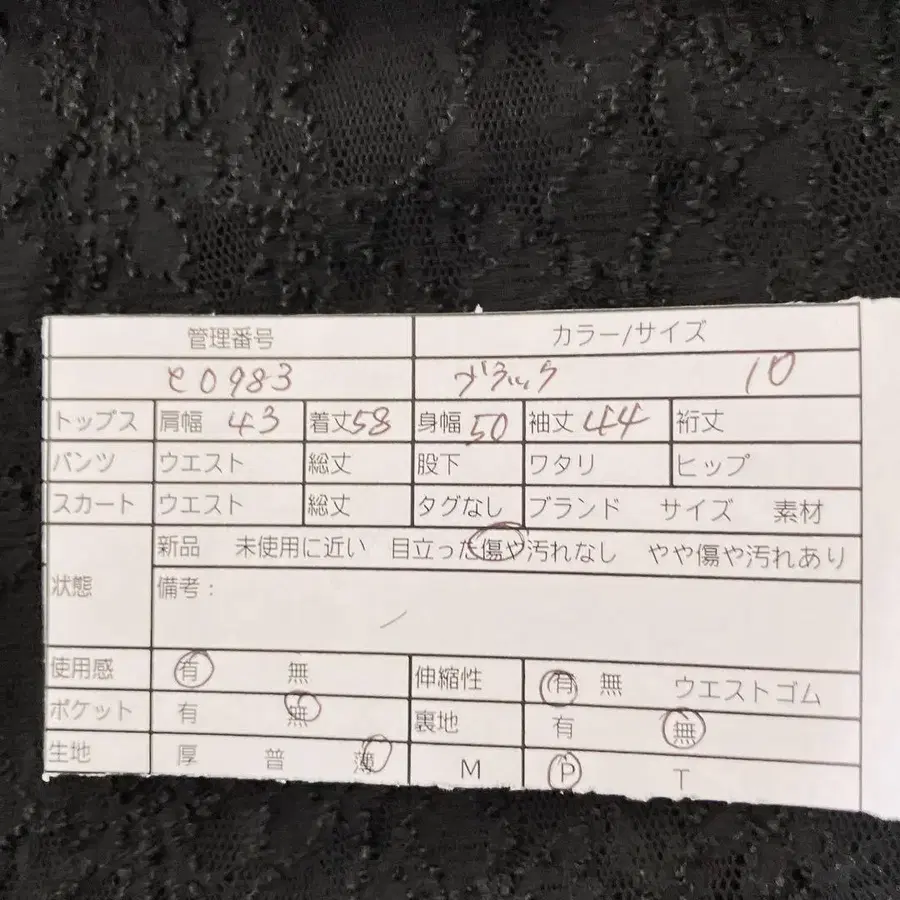 管理番号 カラー/サイズ
C0983 ブラック 10
トップス 肩幅 43 着丈 58 身幅 50 袖丈 44 裄丈
パンツ ウエスト 総丈 股下 ワタリ ヒップ
スカート ウエスト 総丈 タグなし ブランド サイズ 素材
状態 新品 未使用に近い 目立った傷や汚れなし やや傷や汚れあり
備考:
使用感 有 無 伸縮性 有 無 ウエストゴム
ポケット 有 無 裏地 有 無
生地 厚 普 薄 M P T